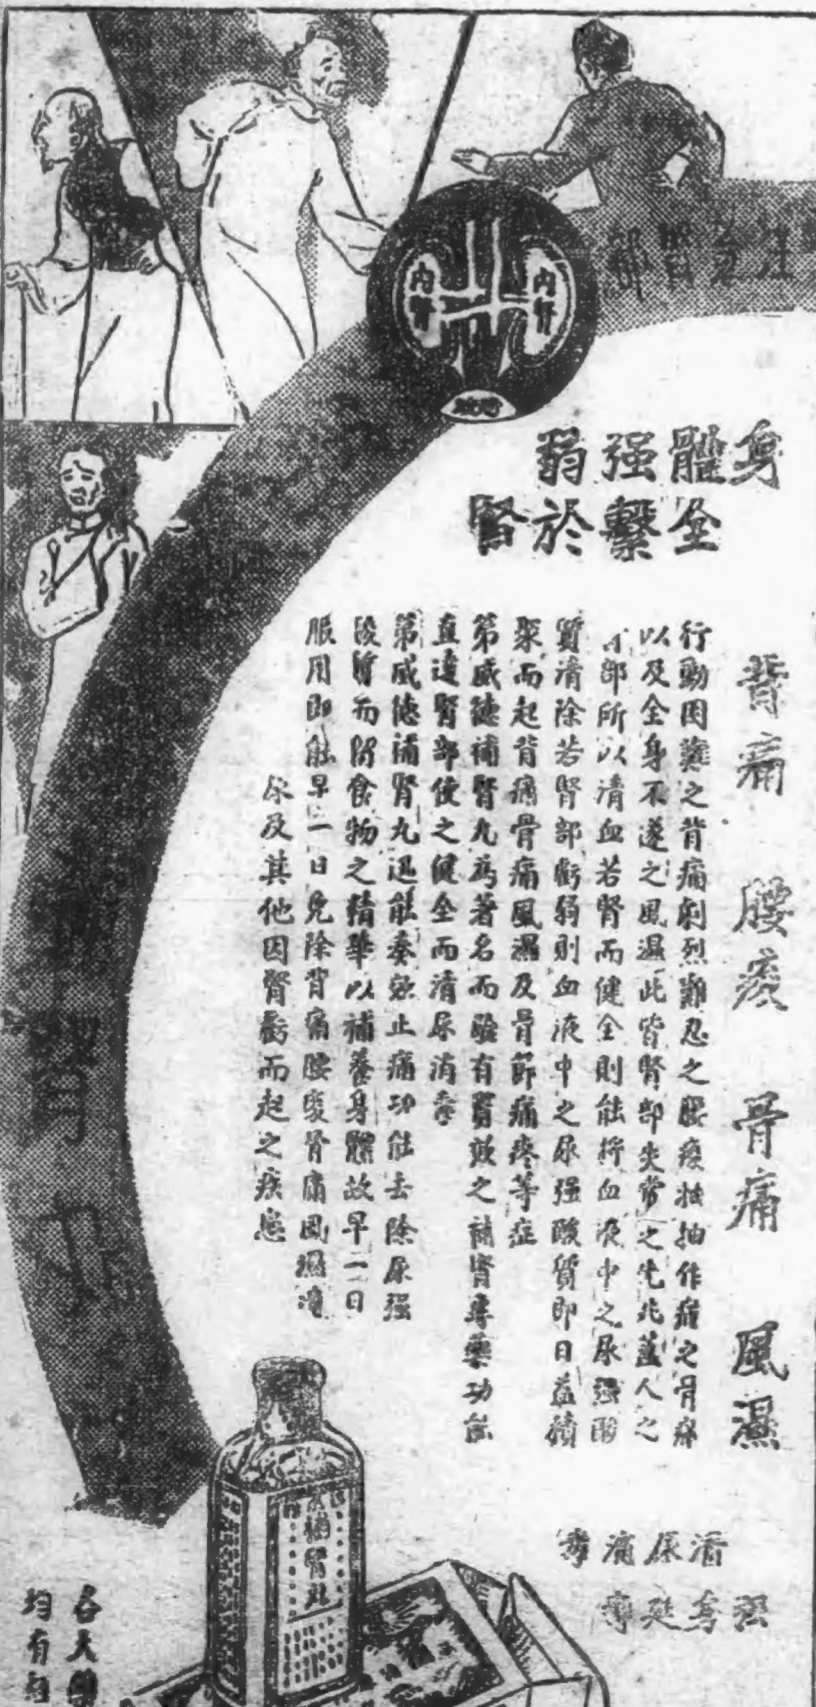 身體强弱
全繫於腎
背痛 腰痠 骨痛 風濕
行動困難之背痛劇烈難忍之腰痠抽作痛之骨痛
以及全身不遂之風濕此皆腎部失常之先兆蓋人之
部所以清血若腎而健全則能將血液中之尿强酸
質清除若腎部虧弱則血液中之尿强酸質即日益積
聚而起背痛骨痛風濕及骨節痛疼等症
第威德補腎丸為著名而驗有實效之補腎專藥功能
直達腎部使之健全而清尿消毒
第威德補腎丸迅能奏效止痛功能去除尿强
酸質而留食物之精華以補養身體故早一日
服用即能早一日免除背痛腰痠骨痛風濕
尿及其他因腎虧而起之疾患
內腎
內腎
補腎丸
各大
均有